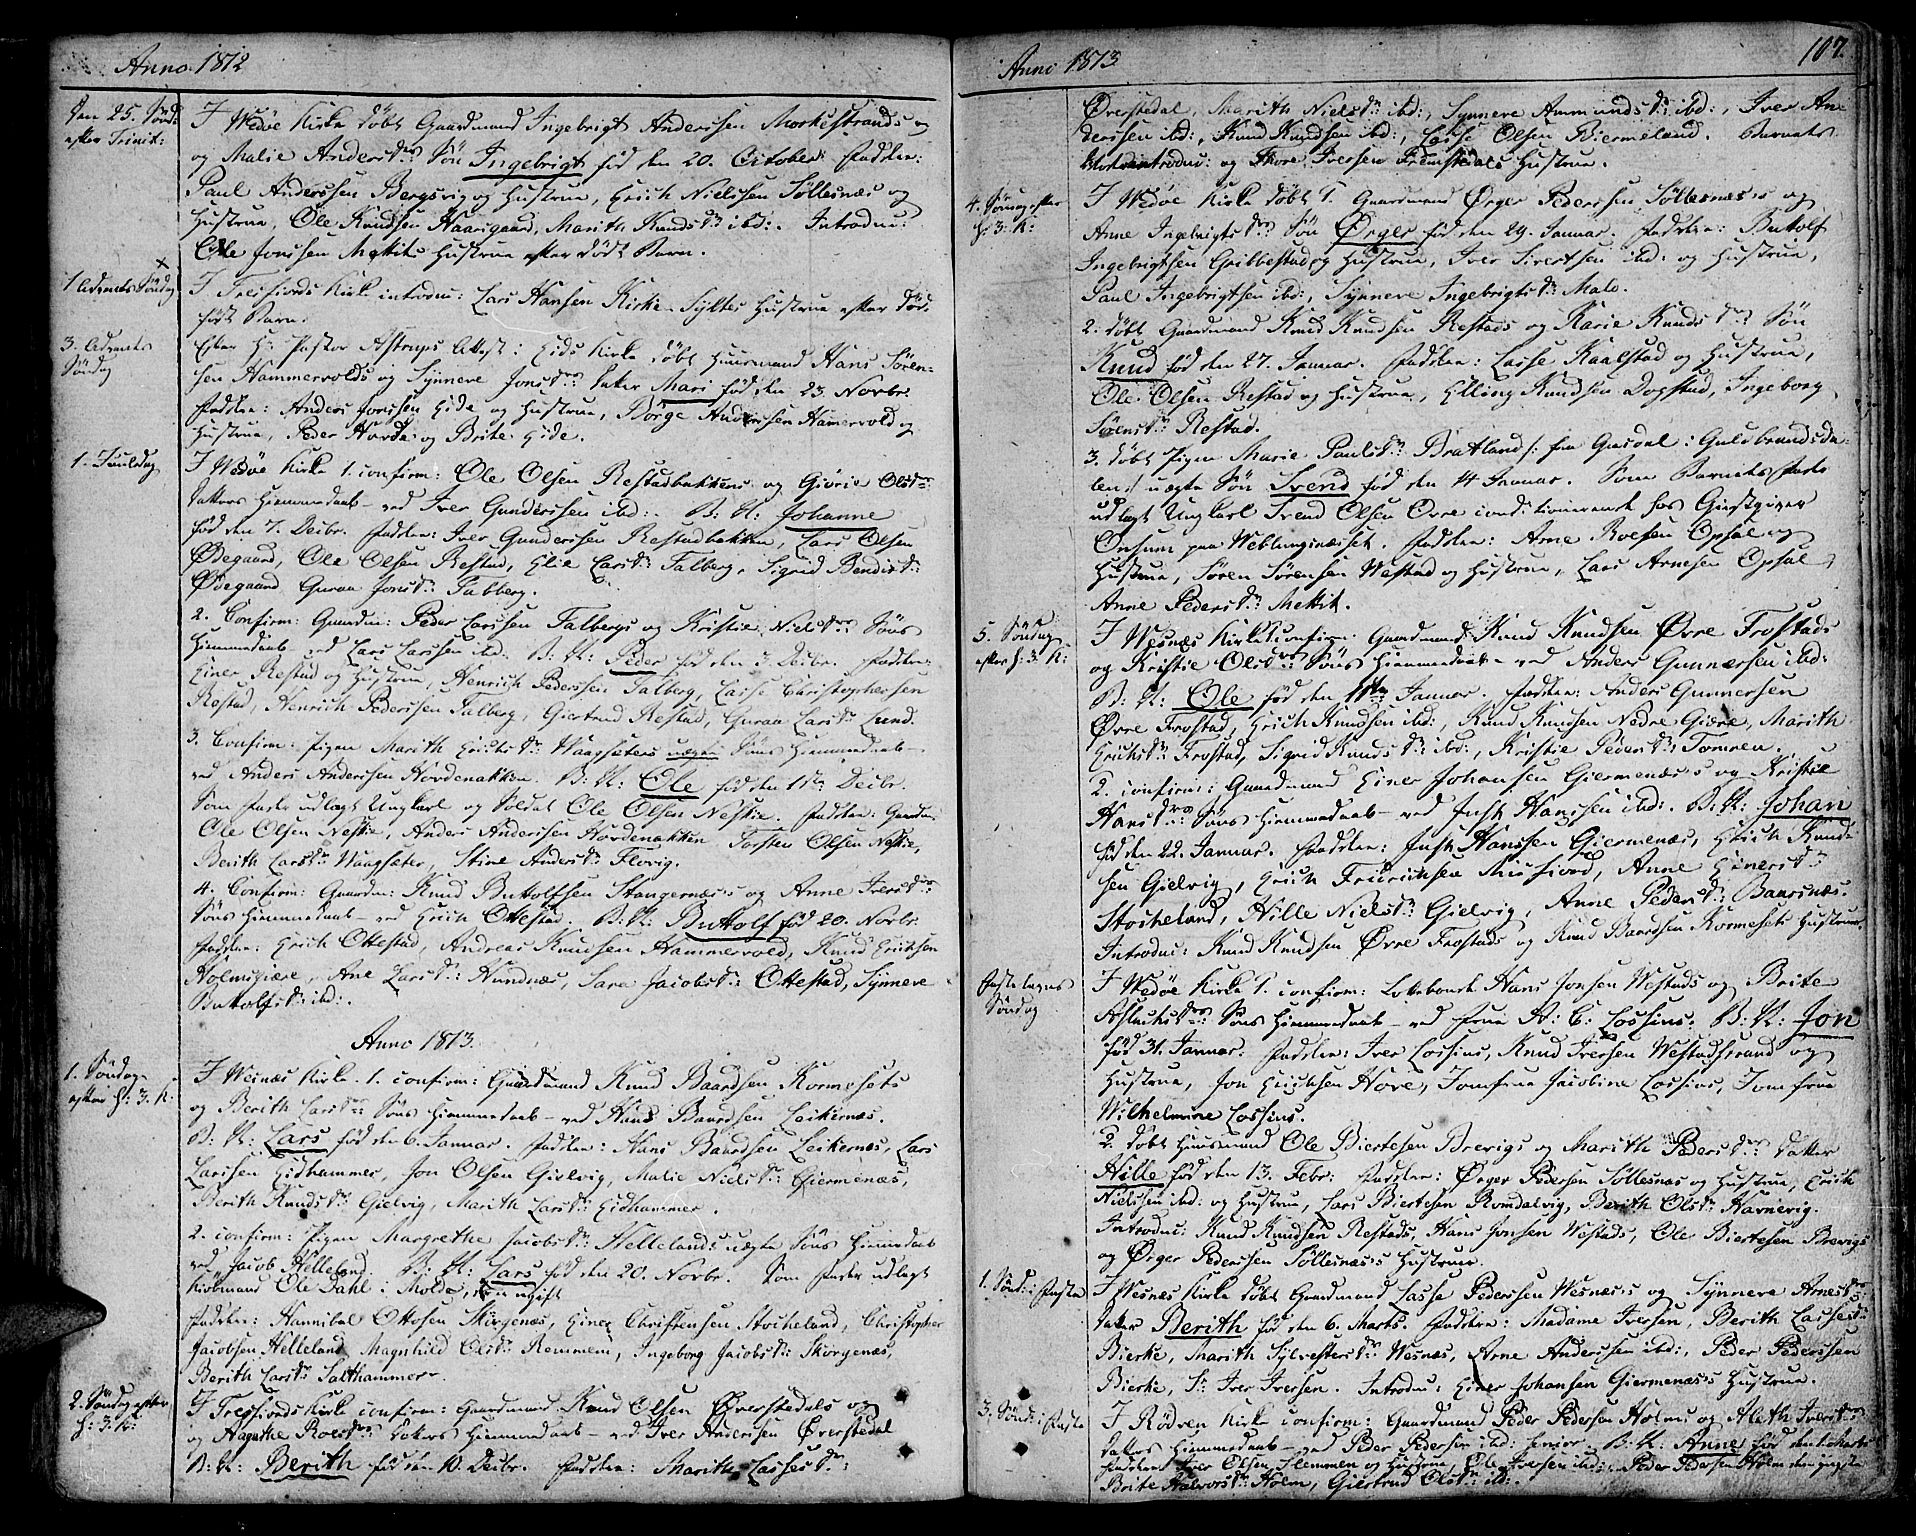 Anno 1812
Den 25. Sönd:
efter Trinit:
I Wedöe Kirke döbt Gaardmand Ingebrigt Anderssen Morkestrands og
og Malie Andersdr: Sön Ingebrigt föd den 20. October: Faddere:
Paul Anderssen Bergsvig og Hustrue, Erich Nielssen Söllesnæs og
Hustrue, Ole Knudsen Haarigaard, Marith Knudsdr: ibd:. Introdu:
Ole Jonssen Mektits Hustrue efter dödt Barn.
1 Advents Söndag
I Trefiords Kirke introdu: Lars Hansen Kirke-Syltes Hustrue efter död-
födt Barn.
3. Advents
Söndag
Efter Hr: Pastor Astrups Attest: Eids Kirke döbt Huusmand Hans Sören-
sen Hammervolds og Synnere Jonsdr: Datter Mari född den 23 Novbr:
Faddere: Anders Jonssen Eide og Hustrue, Börge Anderssen Hamervold og
Hustrue, Peder Hovde og Brite Eide.
1. Juuledag
I Wedöe Kirke 1. confirm: Ole Olsen Restadbakkens og Giörie Olsdr:
Datters Hiemmedaab – ved Iver Gunderssen ibd:. B: N: Johanne
föd den 7. Decbr. Faddere: Iver Gunderssen Restadbakken, Lars Olsen
Ødegaard, Ole Olsen Restad, Elie Larsdr: Talberg, Sigrid Bendtsdr:
Ødegaard Guraa Jonsdr: Talberg.
2. Confirm: Gaardm: Peder Larssen Talbergs og Kristie Nielsdr: Söns
Hiemmedaab – ved Lars Larssen ibd: B: N: Peder föd den 3. Decbr. Faddere:
Einer Restad og Hustrue, Henrich Pederssen Talberg, Lasse Christophersen
Restad, Henrich Pederssen Talberg, Giertrud Restad, Guraa Larsdr: Lund.
3. Confirm: Pigen Marith Erichsdr: Waagsæters uægte Söns Hiemmedaab –
ved Anders Anderssen Hovdenakken. B: N: Ole föd den 1ste Decbr.
Som Fader udlagt Ungkarl og Soldat Ole Olsen Neskie. Faddere: Gaardm:
Ole Olsen Neskie, Anders Anderssen Hovdenakken, Torsten Olsen Neskie,
Berith Larsdr: Waagsæter, Stine Andersdr: Flovig.
4. Confirm: Gaardm: Knud Butolfsen Stangernæs's og Anne Iversdr:
Söns Hiemmedaab – ved Erich Ottestad. B: N: Buttolf föd 20. Novbr.
Faddere: Erich Ottestad, Andreas Knudsen Hammervold, Knud Erichsen
Holmigiære, Ane Larsdr: Hundnæs, Sara Jacobsdr: Ottestad, Synnere
Butolfsdr: ibd:.
Anno 1813.
1. Söndag
efter H: 3. K:
I Wesnæs Kirke. 1. confirm: Gaardmand Knud Baardsen Kormesets
og Berith Larsdr: Söns Hiemmedaab – ved Hans Baardsen Leikernæs.
B: N: Lars föd den 6. Januar. Faddere: Hans Baardsen Leikernæs, Lars
Larssen Eidhammer, Jon Olsen Gielvig, Malie Nielsdr: Giermenæs,
Berith Knudsdr: Gielvig, Marith Larsdr: Eidhammer.
2. confirm: Pigen Margrethe Jacobsdr: Hellelands uægte Söns Hiemmedaab
ved Jacob Helleland. B: N: Lars föd den 20. Novbr. Som Fader udlagt
Kiöbmand Ole Dahl i Molde, en ugift
Faddere: Hannibal Ottosen Skorgenæs, Einer Christensen Stocheland, Christopher
Jacobsen Helleland, Magnhild Olsdr: Remmem, Ingeborg Jacobsdr: Skorgenæs,
Berith Larsdr: Salthammer.
2. Söndag efter
H: 3. K:
I Trefiords Kirke confirm: Gaardmand Knud Olsen Øverstedals og
og Hagathe Roersdr: Datters Hiemmedaab – ved Iver Anderssen Øverstedal
B: N: Berith föd den 10. Decbr. Faddere: Marith Lassesdr:
Anno 1813.
107.
Øverstedal, Marith Nielsdr: ibd:, Synnere Ammundsdr: ibd:, Iver An-
derssen ibd:, Knud Knudsen ibd:, Lasse Olsen Biermeland. Barnets
Moder introdu: og Thore Iversen Fremstedals Hustrue.
4. Sönag efter
H: 3. K:
I Wedöe Kirke döbt 1. Gaardmand Ørger Pederssen Söllesnæs's og
Anne Ingebrigtsdr: Sön Ørger föd den 29. Januar. Faddere: Butolf
Ingebrigtsen Gribbestad og Hustrue, Iver Sivertsen ibd: og Hustrue,
Paul Ingebrigtsen ibd:, Synnere Ingebrigtsdr: Malo.
2. döbt Gaardmand Knud Knudsen Restads og Karie Knudsdr: Sön
Knud föd den 27. Januar. Faddere: Lasse Kaalstad og Hustrue,
Ole Olsen Restad og Hustrue, Elling Knudsen Dogstad, Ingeborg
Sörensdr: Restad.
3. döbt Pigen Marie Paulsdr: Bratland /: fra Gusdal i Guldbrandsda-
len:/ uægte Sön Trend föd den 14 Januar. Som Barnets Fader
udlagt Ungkarl Trend Olsen Øvre conditionerende hos Giestgiver
Onsum paa Weblungsnæsset. Faddere: Arne Roelsen Opsal og
Hustrue, Sören Sörensen Westad og Hustrue, Lars Arnesen Opsal,
Anne Pedersdr: Mektit.
5. Söndag
efter H: 3. K:
I Wesnæs Kirke 1. confirm: Gaardmand Knud Knudsen Øvre Frostads
og Kristie Olsdr: Söns Hiemmedaab – ved Anders Gunnersen ibd:
B: N: Ole föd den 1ste Januar. Faddere: Anders Gunnersen
Øvre Frostad, Erich Knudsen ibd:, Knud Knudsen Nedre Giære, Marith
Erichsdr: Frostad, Sigrid Knudsdr: ibd:, Kristie Pedersdr: Tomren.
2. confirm: Gaardmand Einer Johansen Giermenæs's og Kristie
Hansdr: Söns Hiemmedaab – ved Just Hanssen ibd:. B: N: Johan
föd den 22. Januar. Faddere: Just Hanssen Giermenæs, Erich Knud-
sen Gielvig, Erich Fridrichsen Misfiord, Anne Einersdr:
Stocheland, Hille Nielsdr: Gielvig, Anne Pedersdr: Baarsnæs.
Introdu: Knud Knudsen Øvre Frostads og Knud Baardsen Kormesets Hustruer
Fastelagens
Söndag
I Wedöe Kirke 1. confirm: Leilebonde Hans Jonsen Westads og Brite
Aslachsdr: Söns Hiemmedaab – ved Frue A: C: Lossius. B: N: Jon
föd 31. Januar. Faddere: Iver Lossius, Knud Iversen Westadstrand og
Hustrue, Jon Erichsen Hove, Jomfrue Jacobine Lossius, Jomfrue
Wilhelmine Lossius.
2. döbt Huusmand Ole Biertesen Brevigs og Marith Pedersdr: Datter
Hille föd den 13. Febr: Faddere: Ørger Pedersen Söllesnæs og Hustrue, Erich
Nielssen ibd: og Hustrue, Lars Biertesen Romdalvig, Berith Olsdr: Havnevig.
Introdu: Knud Knudsen Restads, Hans Jonsen Westads, Ole Biertesen Brevigs
og Ørger Pederssen Söllesnæs's Hustruer.
1. Sönd: i Faste
I Wesnæs Kirke döbt Gaardmand Lasse Pederssen Wesnæs's og Synnere Arnesdr:
Datter Berith föd den 6. Marts. Faddere: Madame Iversen, Berith Lassesdr:
Bierke, Marith Sylvestersdr: Wesnæs, Arne Anderssen ibd:, Peder Pederssen
Bierke, Sr: Iver Iversen. Introdu: Einer Johansen Giermenæs's Hustrue.
3. Sönd: i Faste
I Rödven Kirke confirm: Gaardmand Peder Pedersen Holms og Aleth Iversdr:
Datters Hiemmedaab – ved Peder Pedersen ibd: senior. B: N: Anne föd den Marts
Faddere: Iver Olsen Flemmen og Hustrue, Ole Iversen ibd:, Peder Pedersen Holm den yngste
Brite Halvorsdr: Holm, Giertrud Olsdr: ibd:.